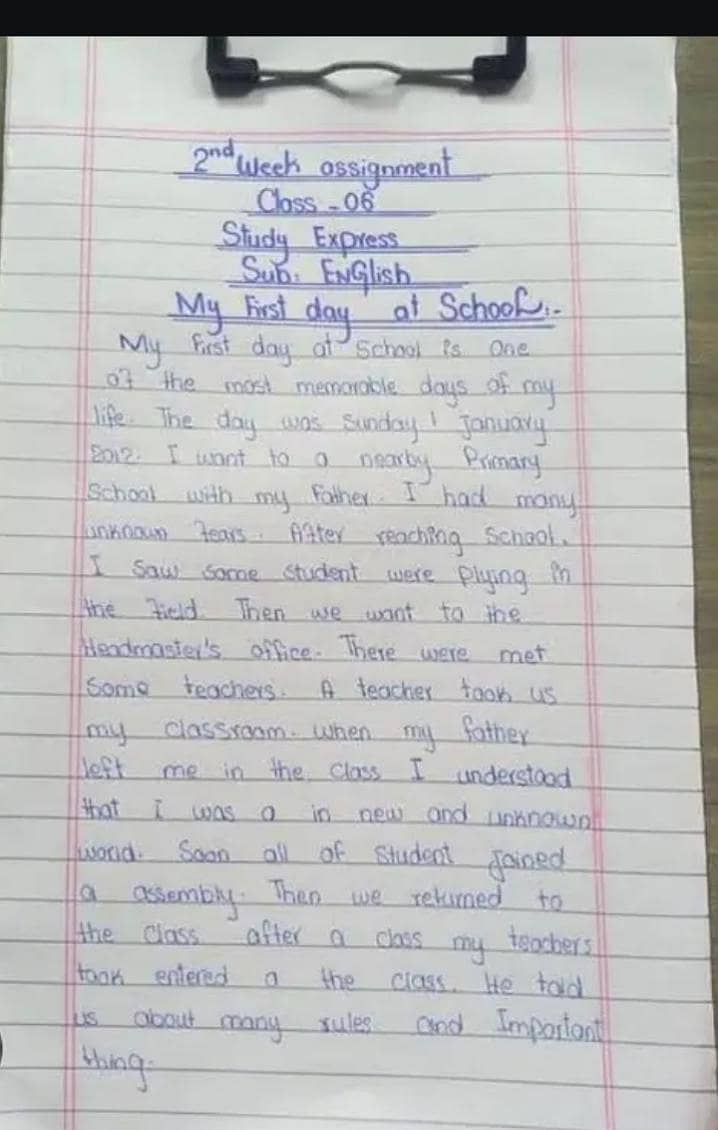 2nd Week assignment
Class - 06
Study Express
Sub: EnGlish
My First day at School:-
My First day at School is One
of the most memorable days of my
life. The day was Sunday 1 January
2012. I want to a nearby Primary
School with my Father. I had many
unknown fears. After reaching School.
I Saw Some Student were Plying in
the Field. Then we want to the
Headmaster's office. There were met
Some teachers. A teacher took us
my classroom. when my father
left me in the class I understood
that I was a in new and unknown
world. Soon all of Student Joined
a assembly. Then we returned to
the Class after a class my teachers
took entered a the class. He told
us about many rules and Important
thing.